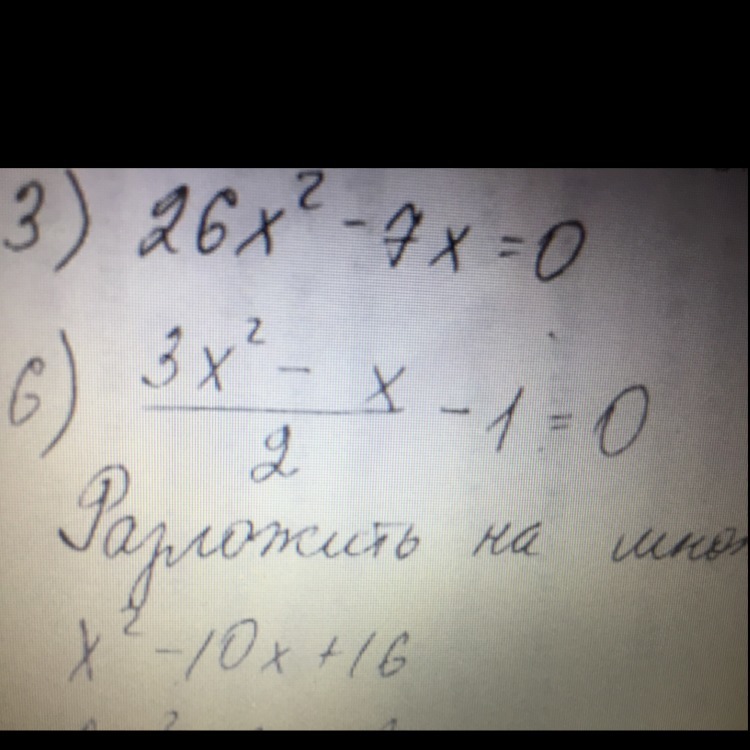 3) 26x² - 7x = 0
6) (3x² - x)/2 - 1 = 0
Разложить на множ
x² - 10x + 16